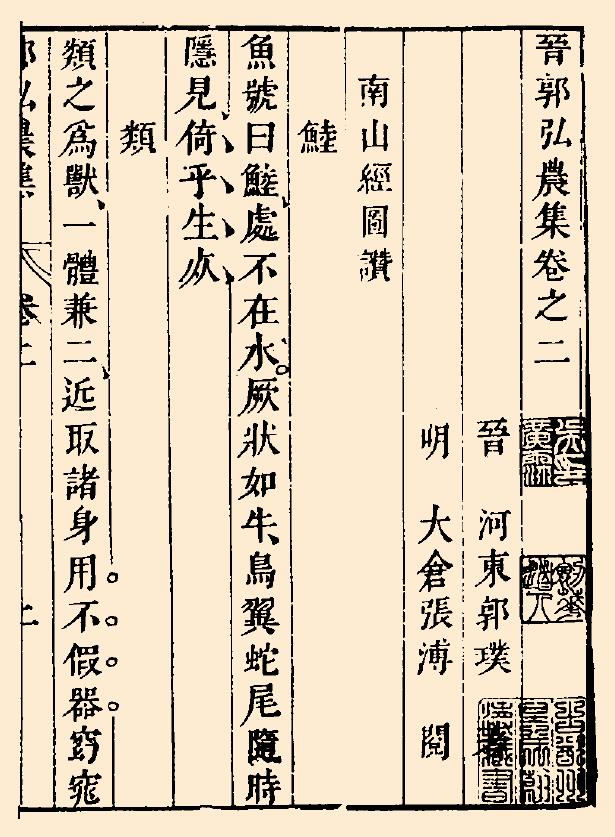 晉郭弘農集卷之二
晉 河東郭璞
明 太倉張溥 閱
南山經圖讚
鯥
魚號曰鯥處不在水厥狀如牛鳥翼蛇尾隨時
隱見倚乎生死
類
類之為獸一體兼二近取諸身用不假器窈窕
卷二